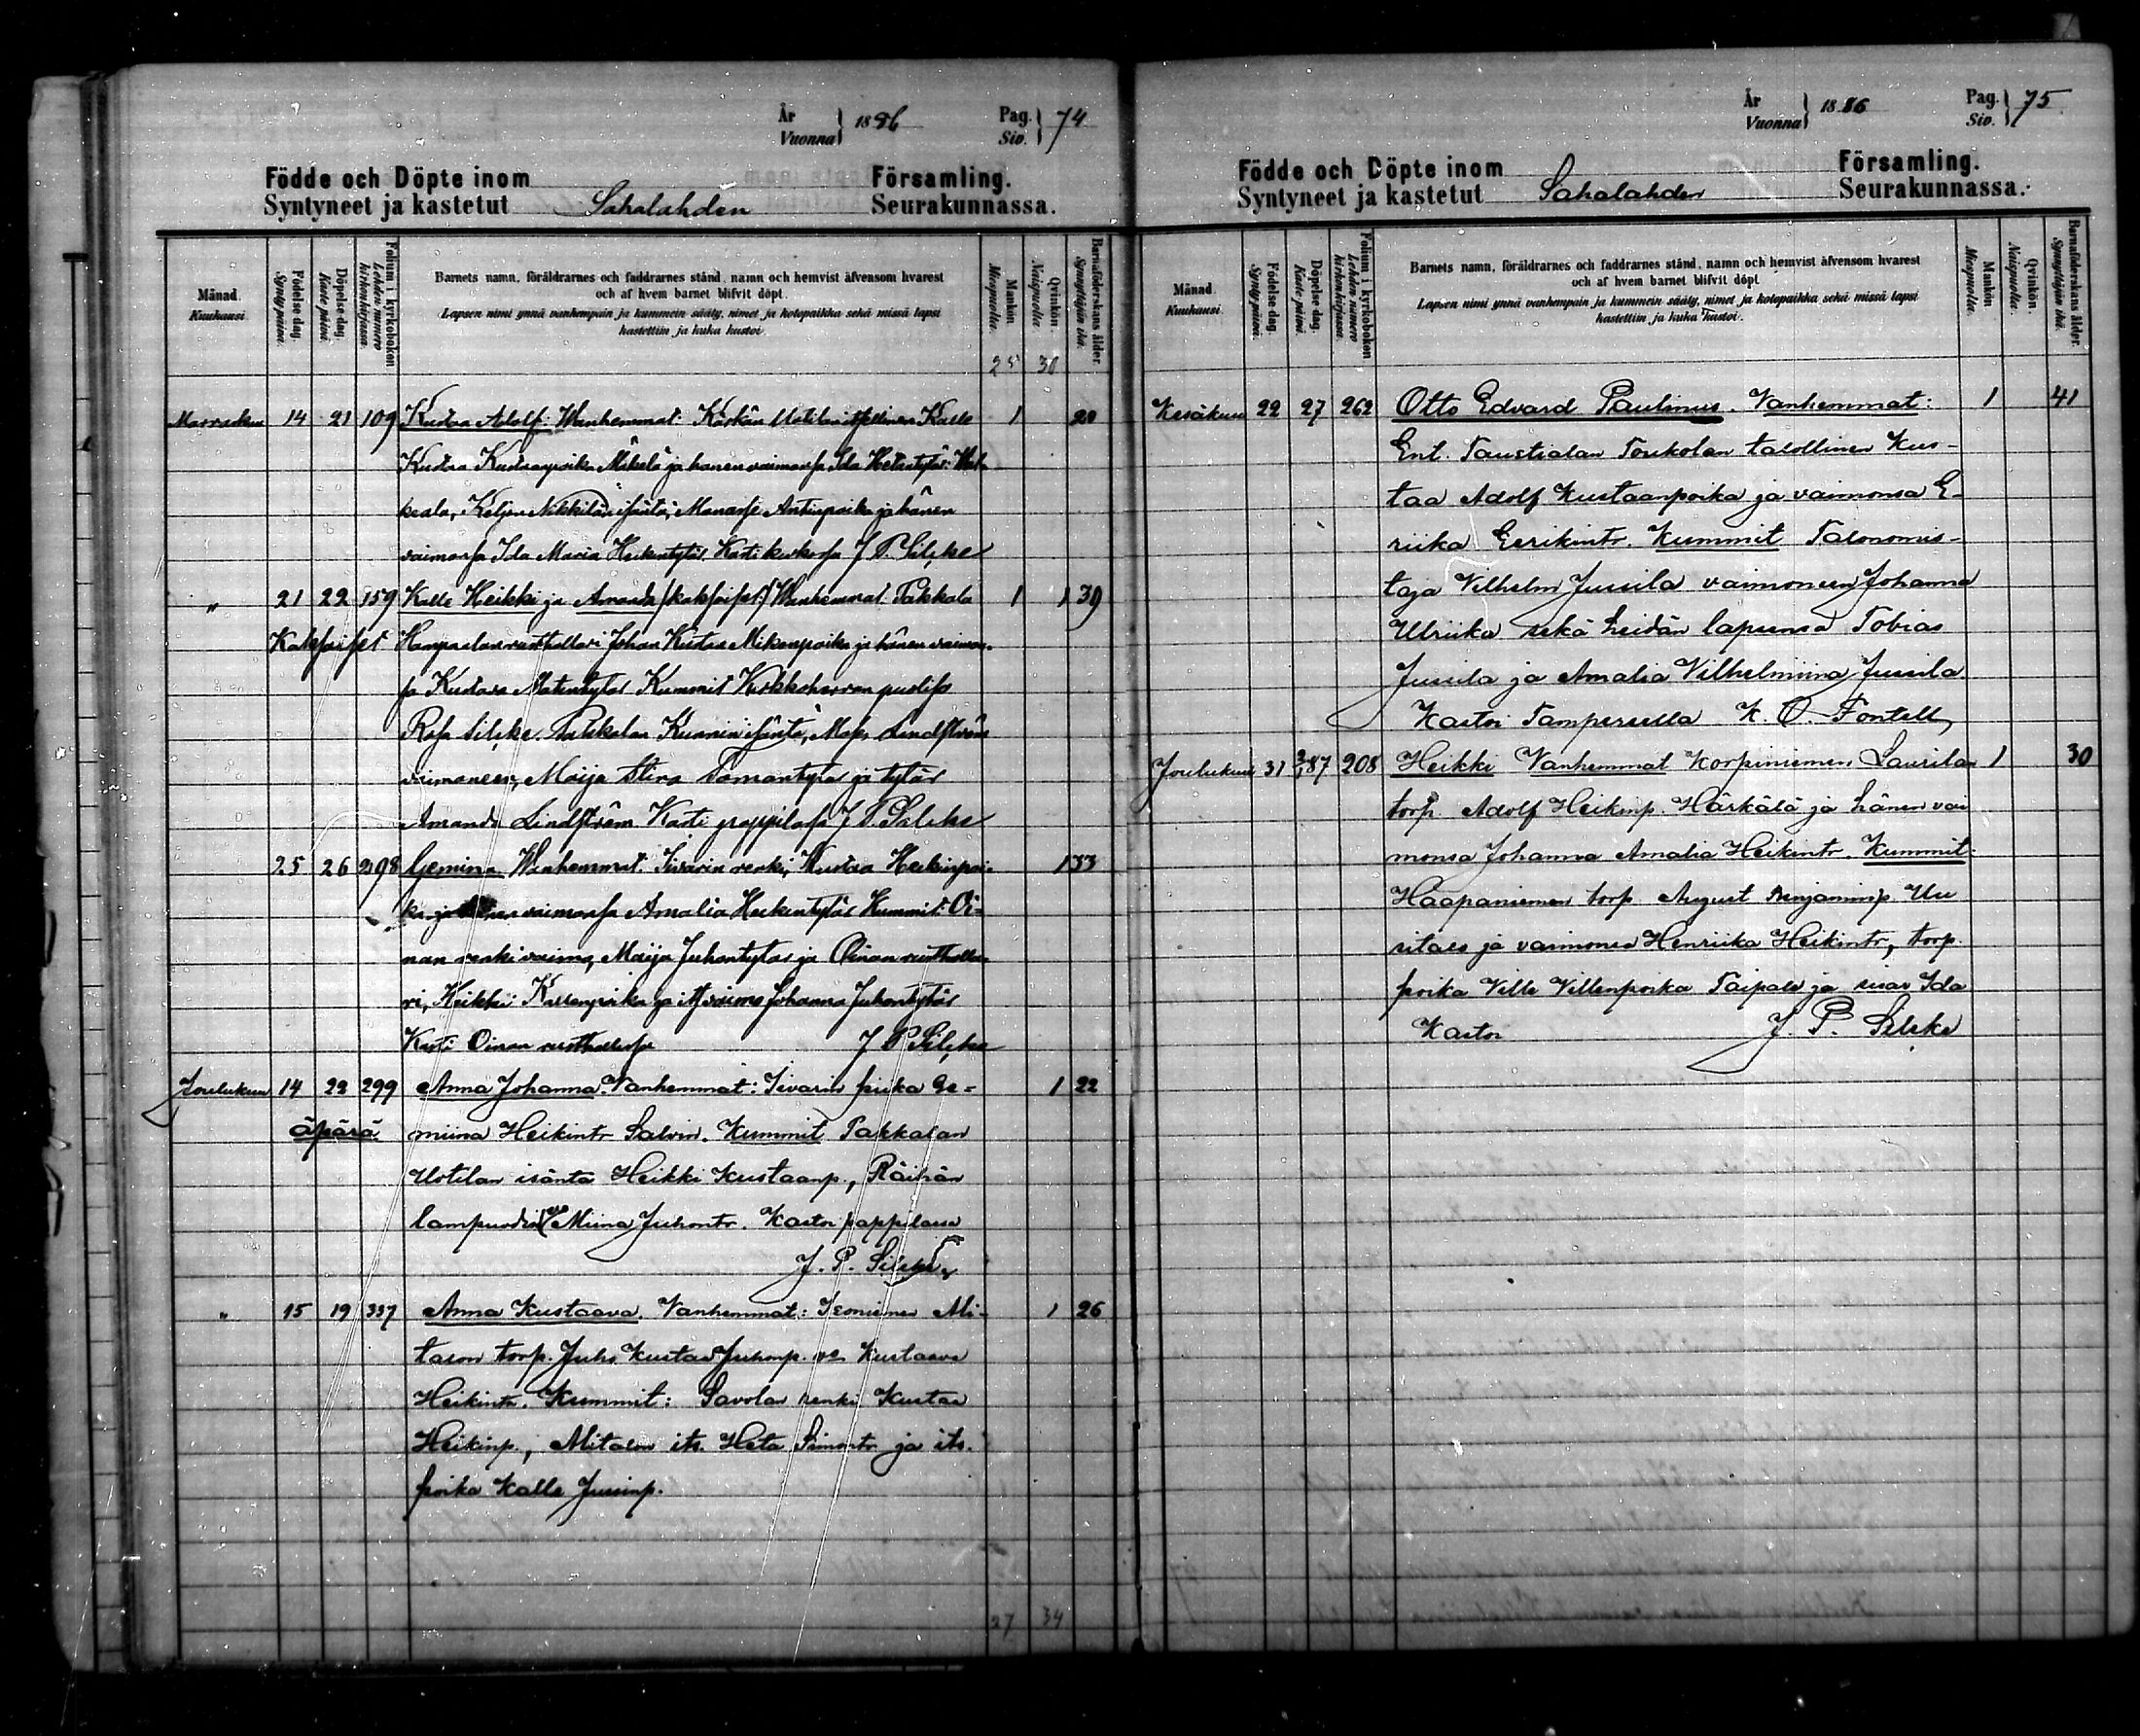 År
Vuonna } 1886 Pag.
Siv. } 74
Födde och Döpte inom Församling.
Syntyneet ja kastetut Sahalahden Seurakunnassa.
Månad. Kuukausi.
Födelse dag. Syntypäivä.
Döpelse dag. Kaste päivä.
Folium i kyrkoboken Lehden numero kirkonkirjassa.
Barnets namn, föräldrarnes och faddrarnes stånd, namn och hemvist äfvensom hvarest
och af hvem barnet blifvit döpt.
Lapsen nimi ynnä vanhempain ja kummein sääty, nimet ja kotopaikka sekä missä lapsi
kastettiin ja kuka kastoi.
Mankön. Miespuolta.
Qvinkön. Naispuolta.
Barnaföderskans ålder. Synnyttäjän ikä.
25 30
Marraskuu 14 21 109 Kustaa Adolf: Wanhemmat: Kalle 1 20
Kustaa Kustaanpoika Mäkelä ja hänen vaimonsa Ida
Nikkilän isäntä, Manasse Antinpoika ja hänen
vaimonsa Ida Maria Heikintytär. Kasti kirkossa J P. Silcke
" 21 22 159 Kalle Heikki ja Amanda /kaksoiset/ Wanhemmat Pakkala 1 1 39
Kaksoiset rusthollari Johan Kustaa Mikonpoika ja hänen vaimon-
sa Kustava Matintytär Kummit Kirkkoherran
Rosa Silcke. Pakkalan isäntä, Lindström
vaimoneen, Maija Stina ja tytär
Amanda Lindström Kasti pappilassa J P. Silcke
25 26 298 Gemina Wanhemmat: Sivarin renki, Kustaa Heikinpoi- 1 33
ka ja vaimonsa Amalia Heikintytär Kummit: Oi-
nan renki vaimo, Maija Juhontytär ja Oinan rustholla-
ri, Heikki ja vaimo Johanna Juhontytär
Kasti Oinan rusthollissa J P Silcke
Joulukuu 14 22 299 Anna Johanna. Vanhemmat: Sivarin piika Ge- 1 22
äpärä miina Heikintr Salvin. Kummit Pakkalan
Uotilan isäntä Heikki Kustaanp., Räihän
Miina Juhontr. Kastoi pappilassa
J. P. Silcke
" 15 19 337 Anna Kustaava. Vanhemmat: Isoniemen Mi- 1 26
talon torp. Juho Kustaa Juhonp. vo Kustaava
Heikintr. Kummit: Savolan renki Kustaa
Heikinp., Mitalon its. Heta Simontr ja its.
poika Kalle Jussinp.
27 34
År
Vuonna } 1886 Pag.
Siv. } 75
Födde och Döpte inom Församling.
Syntyneet ja kastetut Sahalahden Seurakunnassa.
Månad. Kuukausi.
Födelse dag. Syntypäivä.
Döpelse dag. Kaste päivä.
Folium i kyrkoboken Lehden numero kirkonkirjassa.
Barnets namn, föräldrarnes och faddrarnes stånd, namn och hemvist äfvensom hvarest
och af hvem barnet blifvit döpt.
Lapsen nimi ynnä vanhempain ja kummein sääty, nimet ja kotopaikka sekä missä lapsi
kastettiin ja kuka kastoi.
Mankön. Miespuolta.
Qvinkön. Naispuolta.
Barnaföderskans ålder. Synnyttäjän ikä.
Kesäkuu 22 27 262 Otto Edvard Paulinus. Vanhemmat: 1 41
Ent. Taustialan Toukolan talollinen Kus-
taa Adolf Kustaanpoika ja vaimonsa E-
riika Eerikintr. Kummit Talonomis-
taja Vilhelm Jussila vaimoneen Johanna
Ulriika sekä heidän lapsensa Tobias
Jussila ja Amalia Vilhelmiina Jussila.
Kastoi Tampereella K. O. Fontell
Joulukuu 31 3/1 87 208 Heikki Vanhemmat Korpiniemen Laurilan 1 30
torp. Adolf Heikinp. Härkälä ja hänen vai
monsa Johanna Amalia Heikintr. Kummit:
Haapaniemen torp. August Benjaminp. Uu
sitalo ja vaimonsa Henriika Heikintr, torp.
poika Ville Villenpoika Taipale ja sisar Ida
Kastoi J. P. Silcke